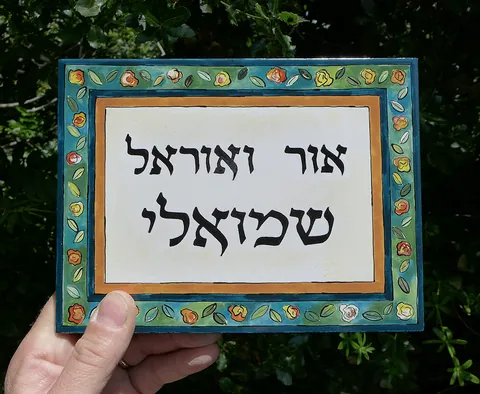 אור ואוראל
שמואלי